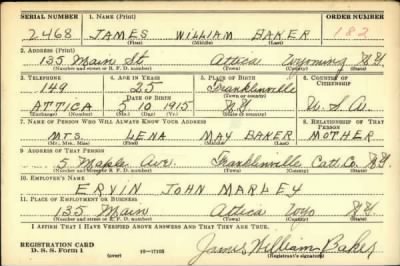 SERIAL NUMBER 1. NAME (Print) ORDER NUMBER
2468 JAMES WILLIAM BAKER 182
(First) (Middle) (Last)
2. ADDRESS (Print)
135 Main St Attica Wyoming N.Y.
(Number and street or R. F. D. number) (Town) (County) (State)
3. TELEPHONE 4. AGE IN YEARS 5. PLACE OF BIRTH 6. COUNTRY OF CITIZENSHIP
149 25 Franklinville
DATE OF BIRTH (Town or county)
ATTICA 5 10 1915 N.Y. U.S.A.
(Exchange) (Number) (Mo.) (Day) (Yr.) (State or country)
7. NAME OF PERSON WHO WILL ALWAYS KNOW YOUR ADDRESS 8. RELATIONSHIP OF THAT PERSON
Mrs. LENA MAY BAKER MOTHER
(Mr., Mrs., Miss) (First) (Middle) (Last)
9. ADDRESS OF THAT PERSON
5 Maple Ave. Franklinville Catt. Co. N.Y.
(Number and street or R. F. D. number) (Town) (County) (State)
10. EMPLOYER'S NAME
ERVIN JOHN MARLEY
11. PLACE OF EMPLOYMENT OR BUSINESS
135 Main Attica Wyo N.Y.
(Number and street or R. F. D. number) (Town) (County) (State)
I AFFIRM THAT I HAVE VERIFIED ABOVE ANSWERS AND THAT THEY ARE TRUE.
REGISTRATION CARD
D. S. S. Form 1 (over) James William Baker
(Registrant's signature)